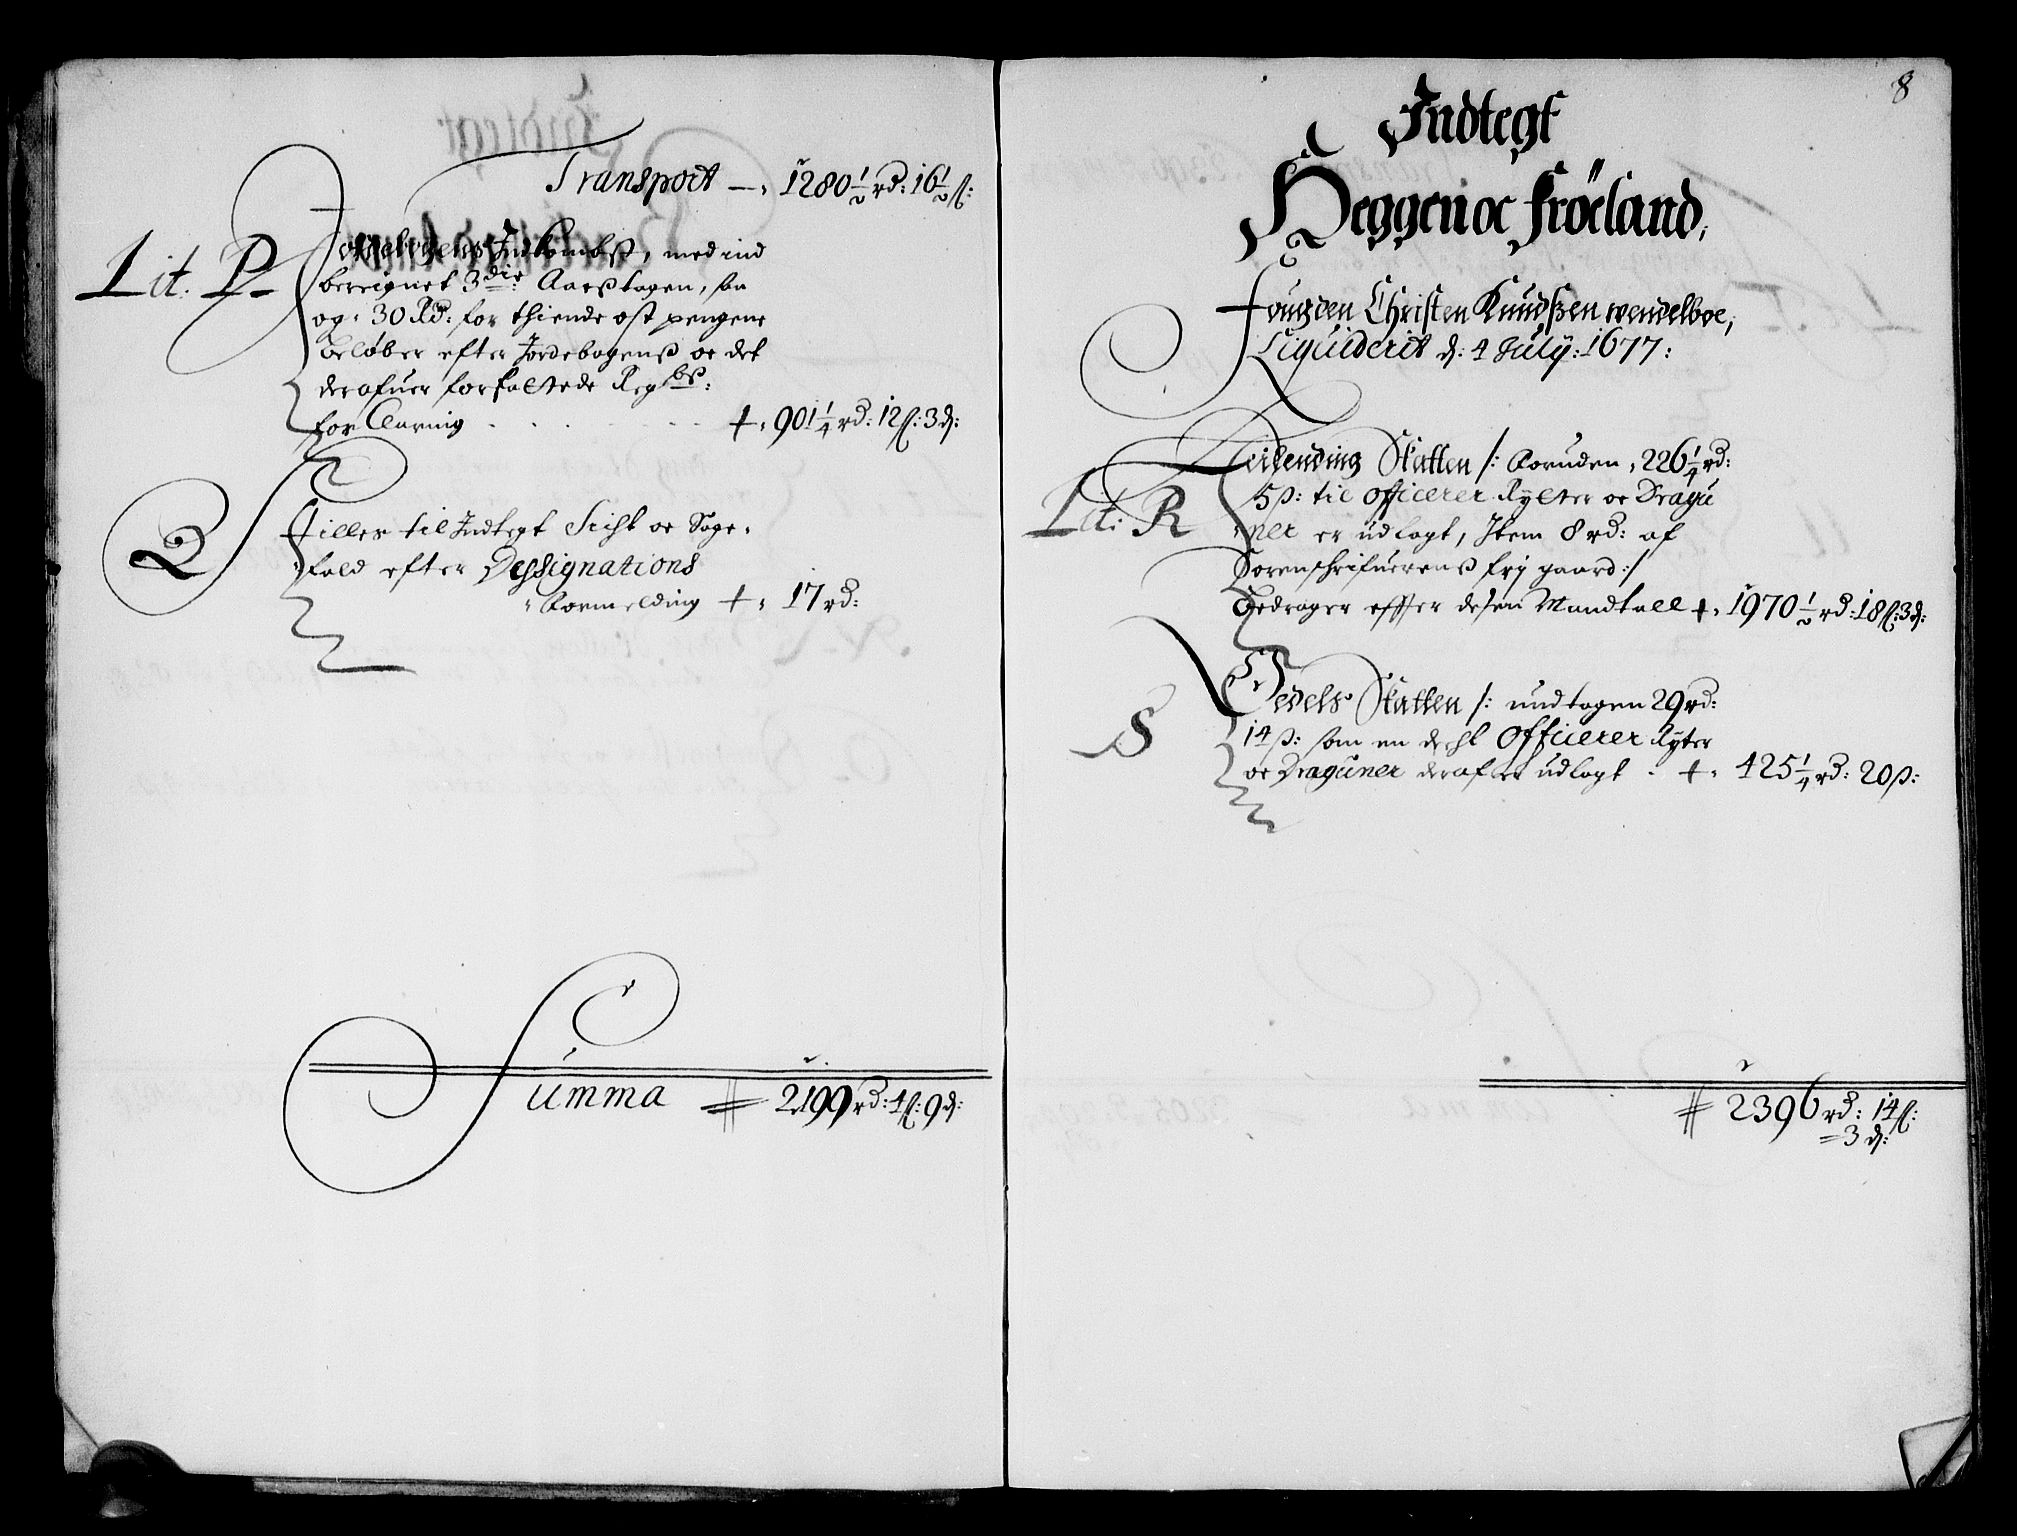 Transport — 1280 1/2 rd: 16 1/2 ß:
Lit. P Jordebogens Indkombst, med ind
bereignet 3die Aarß tagen, saa
og 30 Rd: for thiende ost pengene
beløber efter Jordebogenß oc det
derofuer forfattede Regbß:
for Clarning + 901 1/4 rd: 12 ß: 3 d:
Q Stilles til Indtegt Sicht oc Sage-
fald efter Dessignations
formelding + 17 rd:
Summa 2199 rd: 4 ß: 9 d:
8
Indtegt
Heggen oc Fröeland,
Fougden Christen Knudßen wendelboe,
Liquiderit d: 4 July: 1677:
Lit: R Leilending Skatten /: foruden 226 1/4 rd:
5 ß: til Officerer Rÿtter oc Dragu
ner er udlagt, Item 8 rd: af
Sorenschrifuerenß frj gaard :/
Bedrager effter desen Mandtall + 1970 1/2 rd: 18 ß: 3 d:
S Odels Skatten /: undtagen 29 rd:
14 ß: som en dehl Officerer Rÿter
oc Draguner deraf er udlagt + 425 1/4 rd: 20 ß:
2396 rd: 14 ß:
3 d: